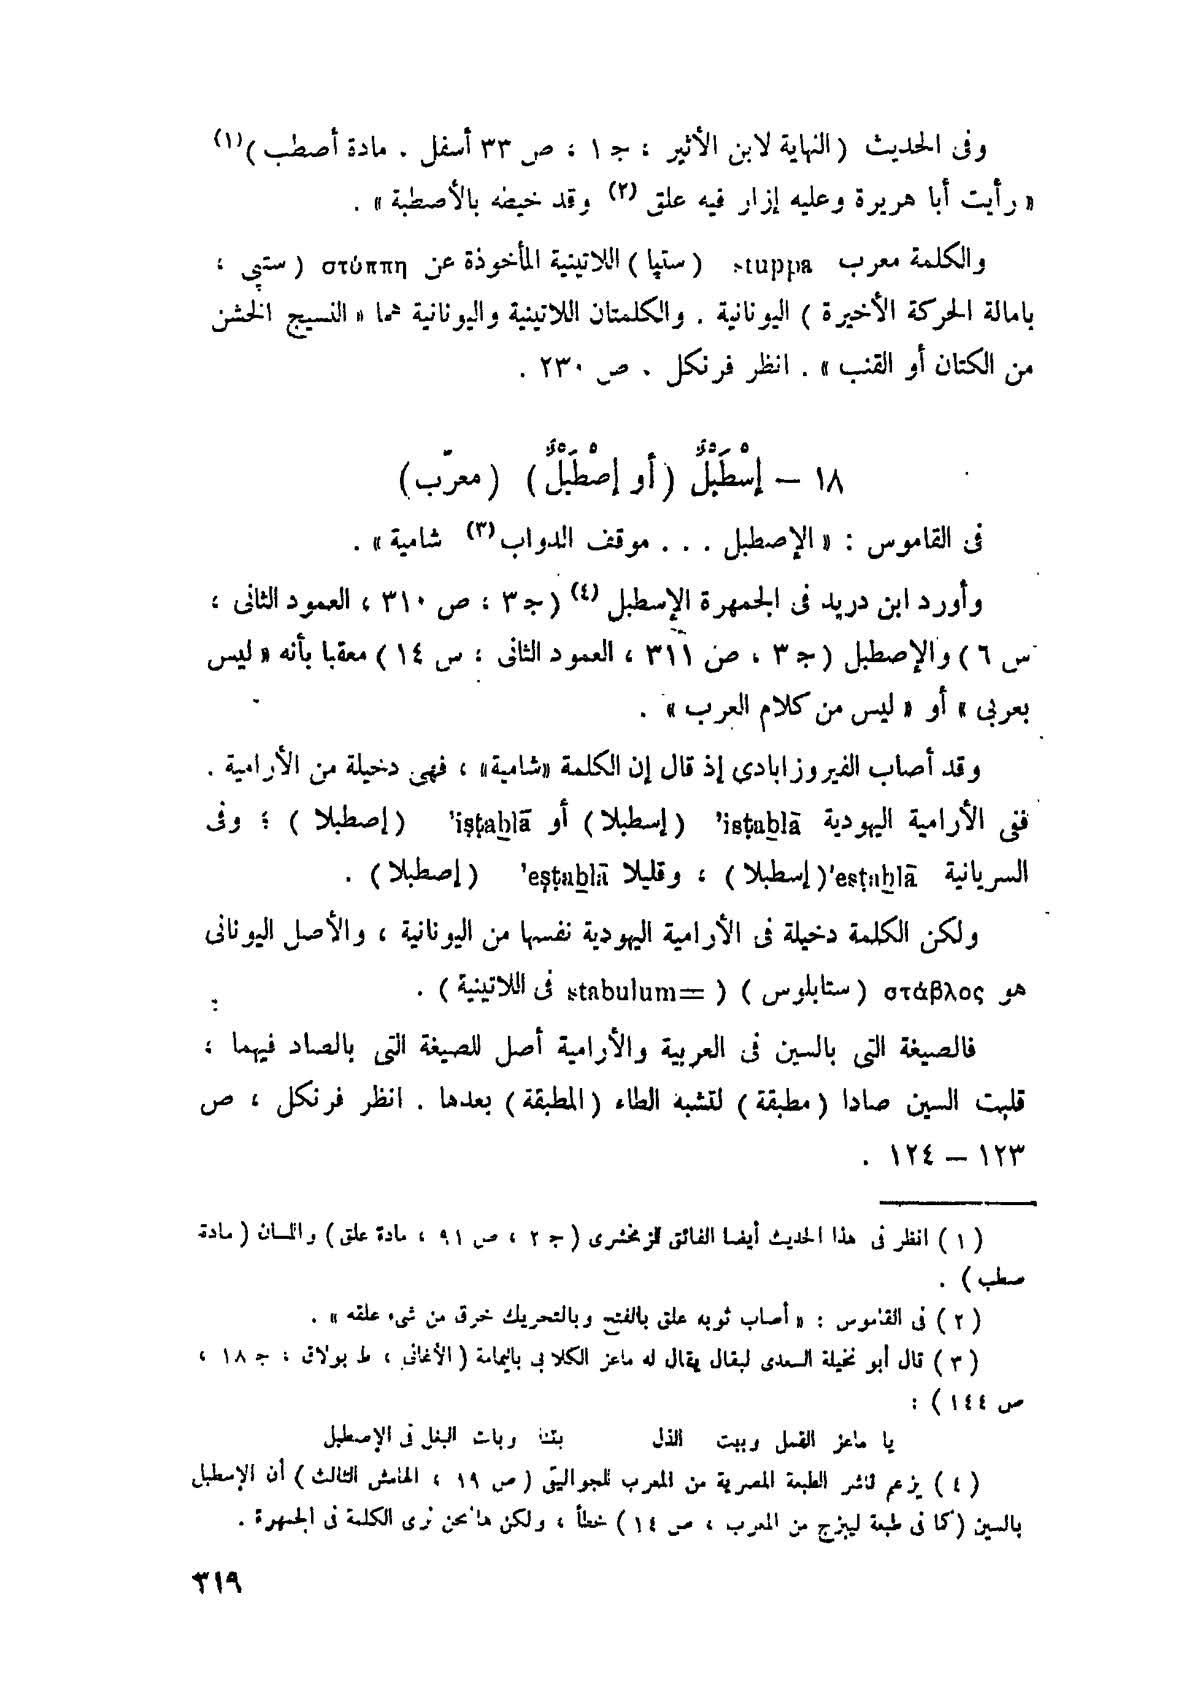 وفى الحديث ( النهاية لابن الأثير ، جـ ١ ، ص ٣٣ أسفل . مادة أصطب )(١)
« رأيت أبا هريرة وعليه إزار فيه علق (٢) وقد خيطه بالأصطبة » .
والكلمة معرب stuppa ( ستپا ) اللاتينية المأخوذة عن στύππη ( ستپى ،
بامالة الحركة الأخيرة ) اليونانية . والكلمتان اللاتينية واليونانية هما « النسيج الخشن
من الكتان أو القنب » . انظر فرنكل . ص ٢٣٠ .
١٨ — إسْطَبْلٌ ( أو إصْطَبْلٌ ) ( معرّب )
فى القاموس : « الإصطبل . . . موقف الدواب(٣) شامية » .
وأورد ابن دريد فى الجمهرة الإسطبل (٤) ( جـ ٣ ، ص ٣١٠ ، العمود الثانى ،
س ٦ ) والإصطبل ( جـ ٣ ، ص ٣١١ ، العمود الثانى ، س ١٤ ) معقبا بأنه « ليس
بعربى » أو « ليس من كلام العرب » .
وقد أصاب الفيروزابادى إذ قال إن الكلمة «شامية» ، فهى دخيلة من الأرامية .
ففى الأرامية اليهودية ’isṭaḇlā ( إسطبلا ) أو ’iṣṭaḇlā ( إصطبلا ) ؛ وفى
السريانية ’esṭaḇlā ( إسطبلا ) ، وقليلا ’eṣṭaḇlā ( إصطبلا ) .
ولكن الكلمة دخيلة فى الأرامية اليهودية نفسها من اليونانية ، والأصل اليونانى
هو στάβλος ( ستابلوس ) ( =stabulum فى اللاتينية ) .
فالصيغة التى بالسين فى العربية والأرامية أصل للصيغة التى بالصاد فيهما ؛
قلبت السين صادا ( مطبقة ) لتشبه الطاء ( المطبقة ) بعدها . انظر فرنكل ، ص
١٢٣ — ١٢٤ .
( ١ ) انظر فى هذا الحديث أيضا الفائق للزمخشرى ( جـ ٢ ، ص ٩١ ، مادة علق ) واللسان ( مادة
صطب ) .
( ٢ ) فى القاموس : « أصاب ثوبه علق بالفتح وبالتحريك خرق من شىء علقه » .
( ٣ ) قال أبو نخيلة السعدى لبقال يقال له ماعز الكلابى باليمامة ( الأغانى ، ط بولاق ، جـ ١٨ ،
ص ١٤٤ ) :
يا ماعز القمل وبيت الذل بتنا وبات البغل فى الإصطبل
( ٤ ) يزعم ناشر الطبعة المصرية من المعرب للجواليقى ( ص ١٩ ، الهامش الثالث ) أن الإسطبل
بالسين ( كما فى طبعة ليبزج من المعرب ، ص ١٤ ) خطأ ، ولكن هانحن نرى الكلمة فى الجمهرة .
٣١٩